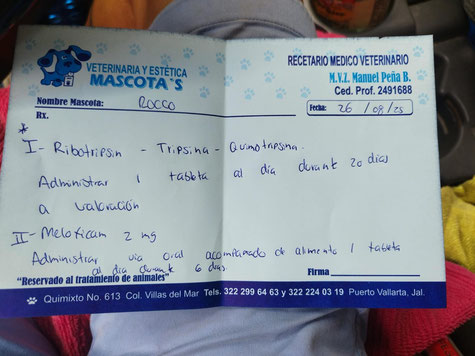 VETERINARIA Y ESTÉTICA
MASCOTA'S
RECETARIO MEDICO VETERINARIO
M.V.Z. Manuel Peña B.
Ced. Prof. 2491688
Nombre Mascota: ROCCO
Fecha: 26 / 08 / 25
Rx.
*
I - Ribotripsin - Tripsina - Quimotripsina.
Administrar 1 tableta al día durant 20 dias
a valoración
II - Meloxicam 2 mg
Administrar via oral acompañado de alimento 1 tableta
al día durante 6 dias
"Reservado al tratamiento de animales"
Firma
Quimixto No. 613 Col. Villas del Mar Tels. 322 299 64 63 y 322 224 03 19 Puerto Vallarta, Jal.